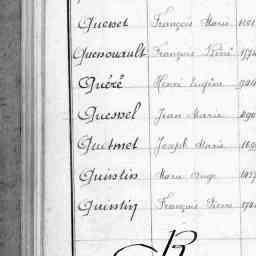 Quesset François Marie
Quessouault François René
Quéré Henri Eugène
Quesnel Jean Marie
Quetmet Joseph Marie
Quintin Marie Ange
Quintin François Pierre
R